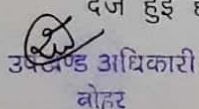 दर्ज हुई ह
उपखण्ड अधिकारी
बोहर